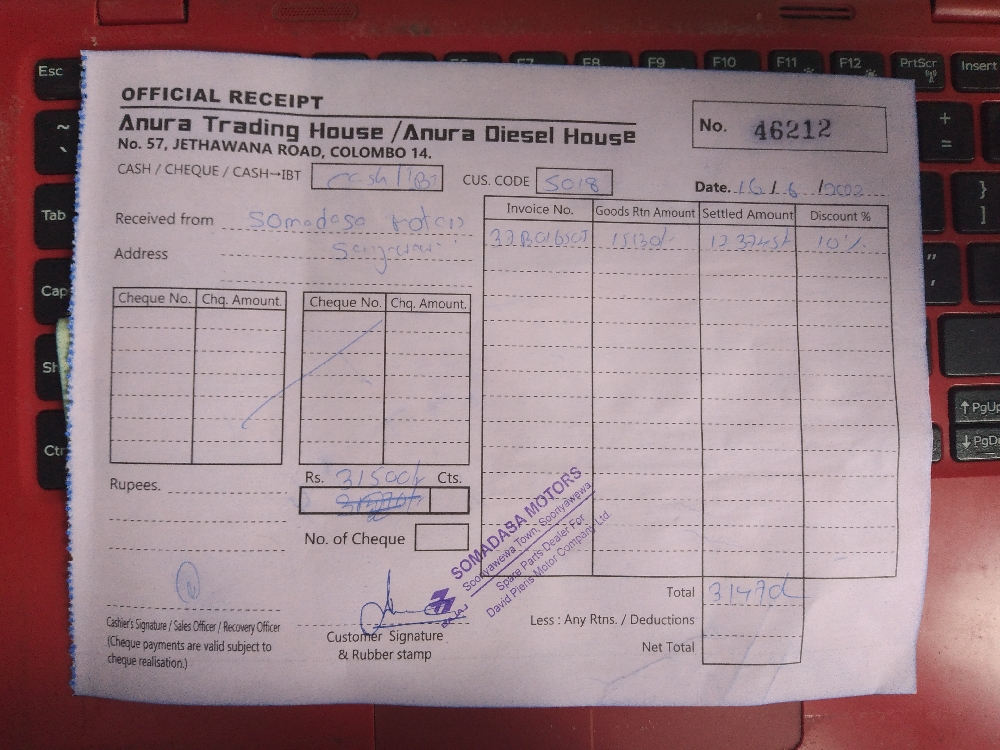 OFFICIAL RECEIPT
Anura Trading House /Anura Diesel House
No. 57, JETHAWANA ROAD, COLOMBO 14.
No. 46212
CASH / CHEQUE / CASH→IBT cash/IBT CUS. CODE 5018 Date. 16/6/
Received from Somadasa
Address
Invoice No. Goods Rtn Amount Settled Amount Discount %
10%
Cheque No. Chq. Amount. Cheque No. Chq. Amount.
Rupees. Rs. 31500/- Cts.
No. of Cheque
SOMADASA MOTORS
Sooriyawewa Town, Sooriyawewa
Spare Parts Dealer For
David Pieris Motor Company Ltd.
BAJAJ
Total 31470/
Less : Any Rtns. / Deductions
Net Total
Cashier's Signature / Sales Officer / Recovery Officer
(Cheque payments are valid subject to
cheque realisation.)
Customer Signature
& Rubber stamp
Esc F7 F8 F9 F10 F11 F12 PrtScr Insert
~ ` + =
Tab } ]
Cap " '
Sh ↑PgUp
Ctr ↓PgD